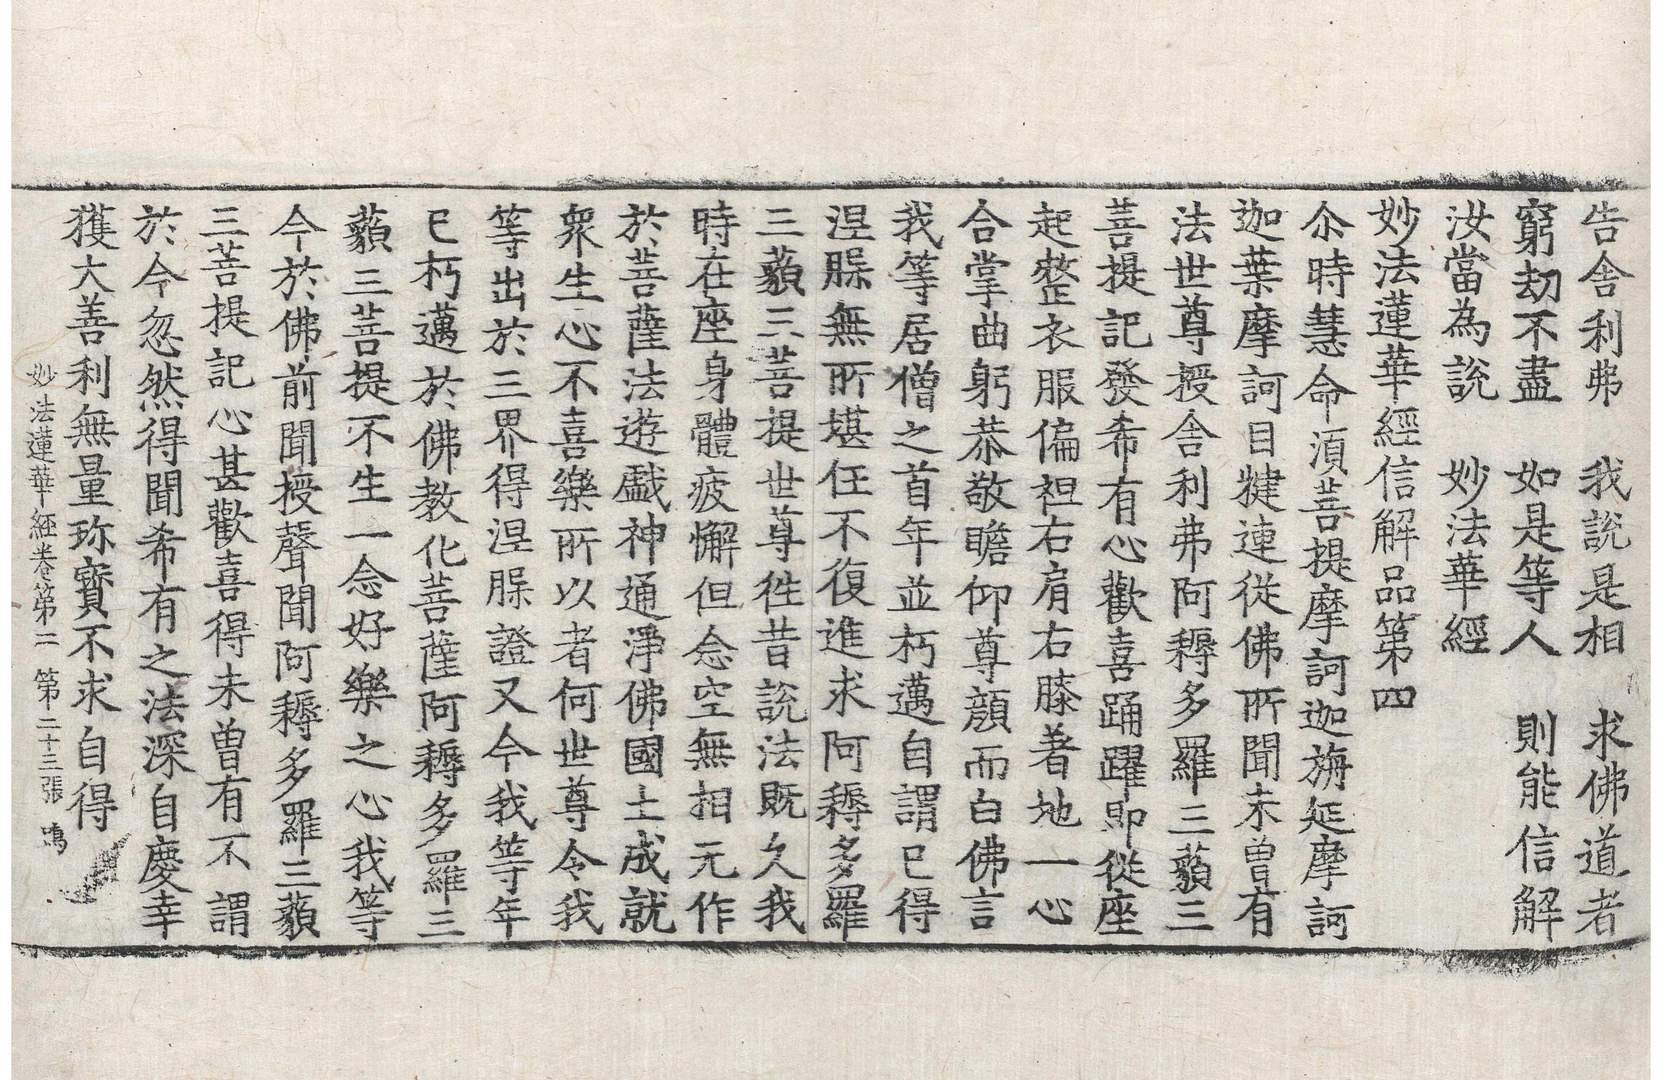 告舍利弗　我說是相　求佛道者
窮劫不盡　如是等人　則能信解
汝當為說　妙法華經
妙法蓮華經信解品第四
尒時慧命須菩提摩訶迦旃延摩訶
迦葉摩訶目犍連從佛所聞未曾有
法世尊授舍利弗阿耨多羅三藐三
菩提記發希有心歡喜踊躍即從座
起整衣服偏袒右肩右膝著地一心
合掌曲躬恭敬瞻仰尊顔而白佛言
我等居僧之首年並朽邁自謂已得
涅槃無所堪任不復進求阿耨多羅
三藐三菩提世尊徃昔說法既久我
時在座身體疲懈但念空無相无作
於菩薩法遊戲神通淨佛國土成就
衆生心不喜樂所以者何世尊令我
等出於三界得涅槃證又今我等年
已朽邁於佛教化菩薩阿耨多羅三
藐三菩提不生一念好樂之心我等
今於佛前聞授聲聞阿耨多羅三藐
三菩提記心甚歡喜得未曾有不謂
於今忽然得聞希有之法深自慶幸
獲大善利無量珎寳不求自得
妙法蓮華經卷第二　第二十三張　鳴